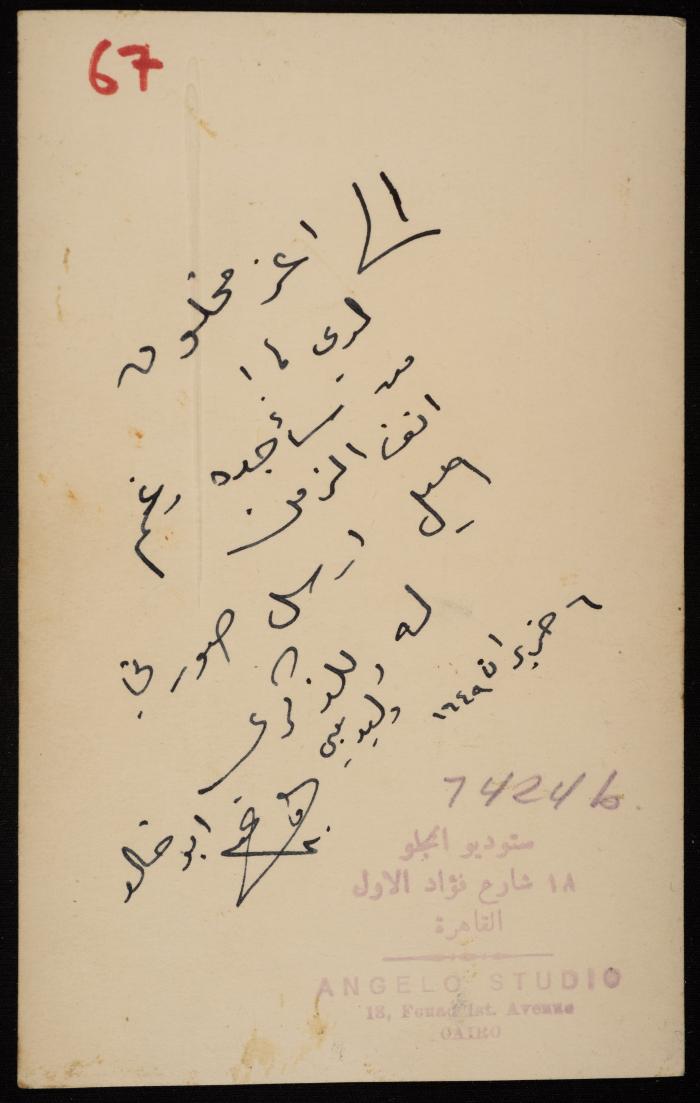 67
الى اعز مخلوق
لدي ما
من سأجده رغم
انف الزمن
ارسل صورتي
له وللذكرى
٦ حزيران ١٩٤٩
ابو خالد
74246.
ستوديو انجلو
١٨ شارع فؤاد الاول
القاهرة
ANGELO STUDIO
18, Fouad 1st. Avenue
CAIRO